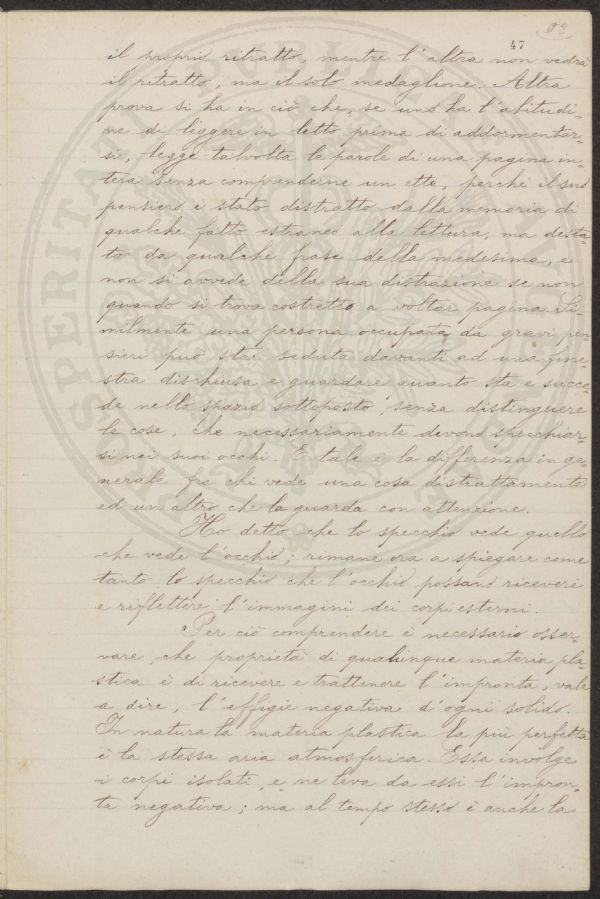 03
47
il proprio ritratto, mentre l'altra non vedrà
il ritratto, ma il solo medaglione. Altra
prova si ha in ciò che, se uno ha l'abitudi=
ne di liggere in letto prima di addormentar=
si, legge talvolta le parole di una pagina in=
tera senza comprenderne un ette, perchè il suo
pensiero è stato distratto dalla memoria di
qualche fatto estraneo alla lettura, ma desta=
to da qualche frase della medesima, e
non si avvede della sua distrazione se non
quando si trova costretto a voltar pagina. Si=
milmente una persona occupata da gravi pen=
sieri può star seduta davanti ad una fine=
stra dischiusa e guardare quanto sta e succe=
de nello spazio sottoposto, senza distinguere
le cose, che necessariamente devono specchiar=
si nei suoi occhi. E tale è la differenza in ge=
nerale fra chi vede una cosa distrattamente
ed un altro che la guarda con attenzione.
Ho detto che lo specchio vede quello
che vede l'occhio; rimane ora a spiegare come
tanto lo specchio che l'occhio possano riceveri
e riflettere l'immagini dei corpi esterni.
Per ciò comprendere è necessario osser=
vare, che proprietà di qualunque materia pla=
stica è di ricevere e trattenere l'impronta, vale
a dire, l'effigie negativa d'ogni solido.
In natura la materia plastica la più perfetta
è la stessa aria atmosferica. Essa involge
i corpi isolati, e ne leva da essi l'impron=
ta negativa; ma al tempo stesso è anche la